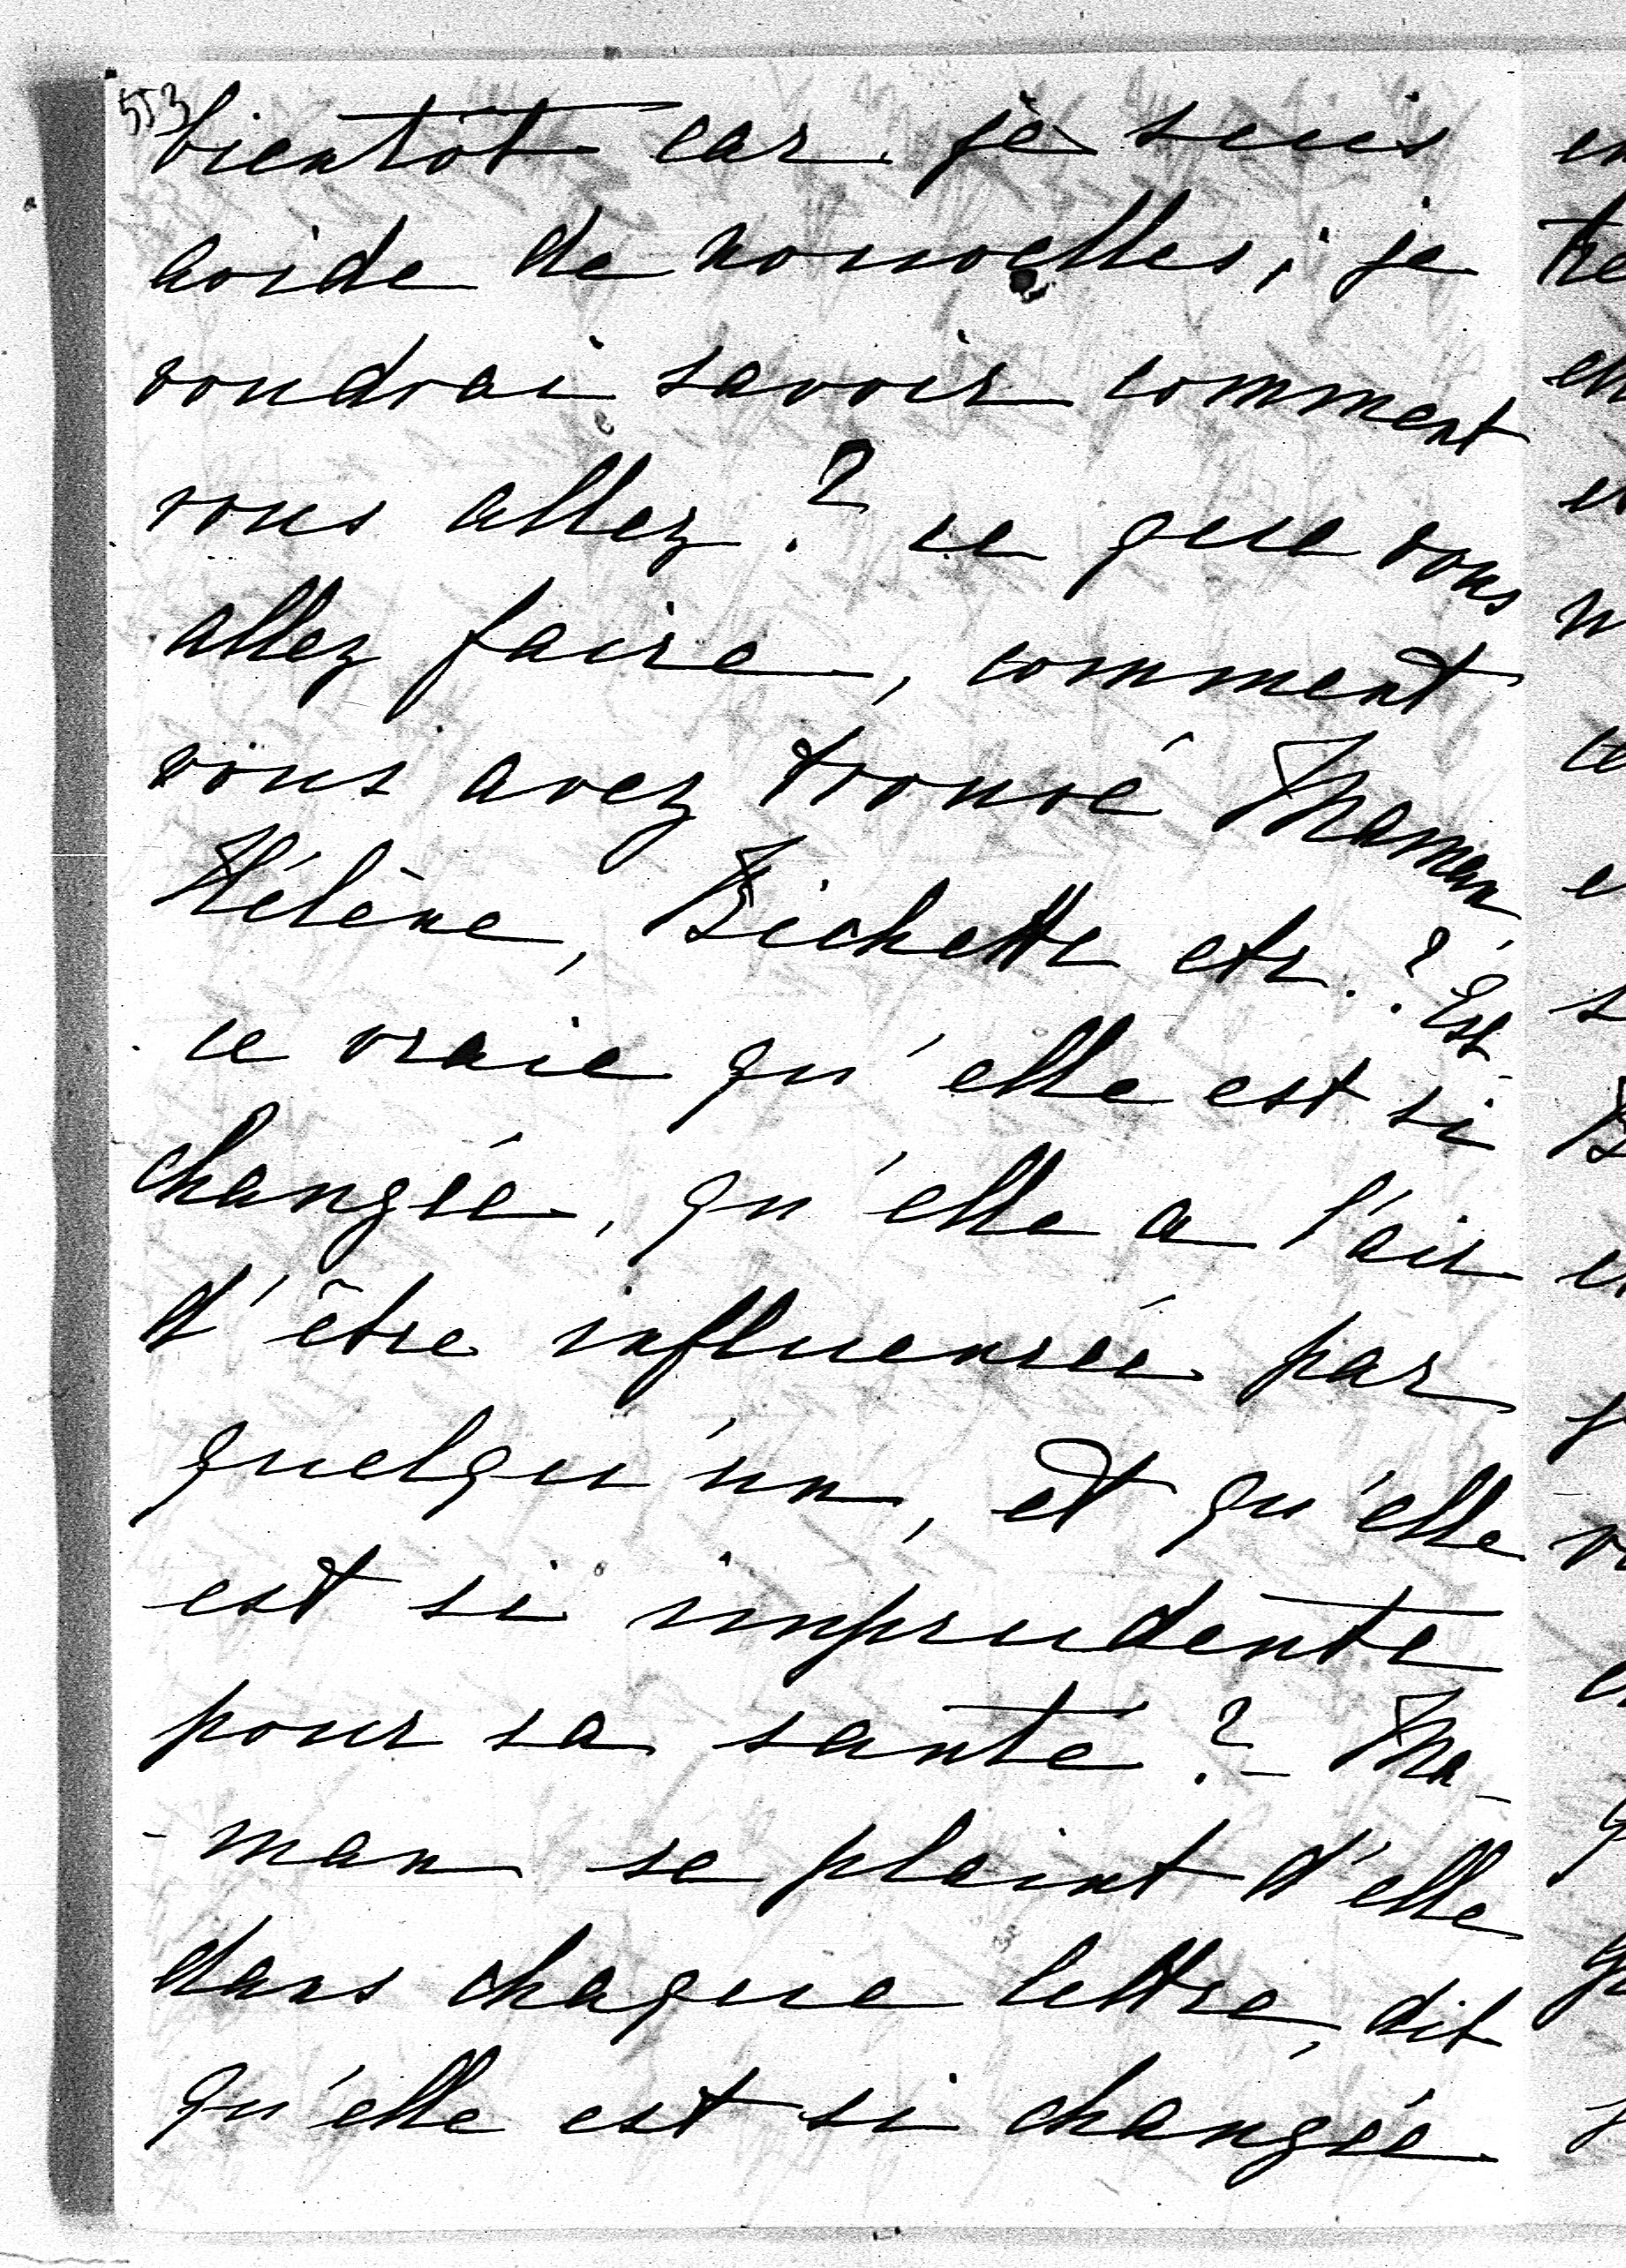 553
bientôt car je suis
avide de nouvelles; je
voudrai savoir comment
vous allez? ce que vous
allez faire, comment
vous avez trouvé Maman,
Hélène, Bichette etc.? Est-
ce vraie qu'elle est si
changée, qu'elle a l'air
d'être influencée par
quelqu'un, et qu'elle
est si imprudente
pour sa santé? - Ma-
-man se plaint d'elle
dans chaque lettre, dit
qu'elle est si changée